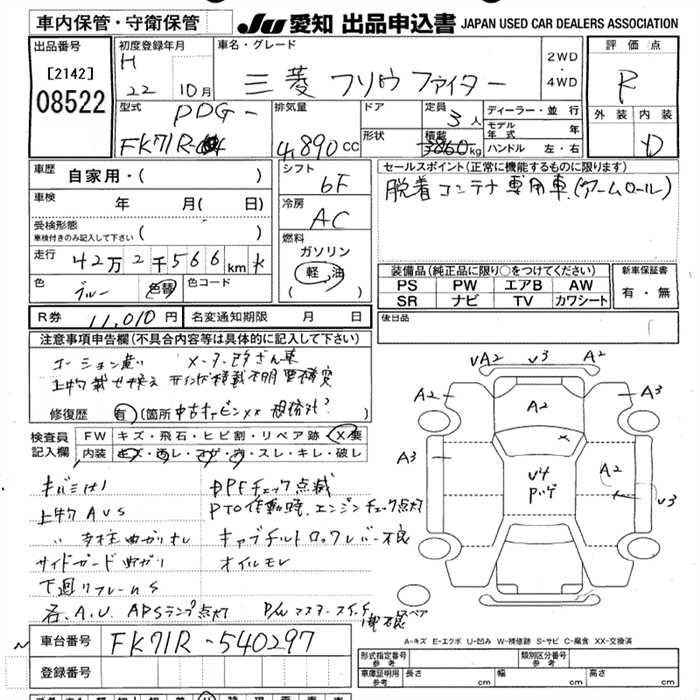 車内保管・守衛保管 JU 愛知 出品申込書 JAPAN USED CAR DEALERS ASSOCIATION
出品番号 [2142] 08522
初度登録年月 H 22 10月
車名・グレード 三菱 フソウ ファイター 2WD・4WD
評価点 R
外装 内装 D
型式 PDG- FK71R
排気量 4,890cc
ドア
形状
定員 3人
積載 3860kg
ディーラー・並行
モデル年式 年
ハンドル 左・右
車歴 自家用・( )
車検 年 月( 日)
受検形態 車検付きのみ記入して下さい ( )
走行 42万2千566km
色 ブルー 色替 色コード
シフト 6F
冷房 AC
燃料 ガソリン 軽油 ( )
セールスポイント(正常に機能するものに限ります)
脱着コンテナ専用車(アームロール)
装備品(純正品に限り○をつけてください)
PS PW エアB AW
SR ナビ TV カワシート
新車保証書 有・無
後日品
R券 11,010円 名変通知期限 月 日
注意事項申告欄(不具合内容等は具体的に記入して下さい)
コーション違い メーター改ざん車
上物載せ換え
修復歴 有 (箇所
検査員記入欄
FW キズ・飛石・ヒビ割・リペア跡・X要
内装 キズ・汚レ・コゲ・穴・スレ・キレ・破レ
キバミ
DPFチェック点滅
上物AUS
PTO作動時、エンジンチェック点灯
〃 支柱曲ガリ
キャブチルトロックレバー不良
サイドガード曲ガリ
オイルモレ
下廻リフレームS
各.A.U. ABSランプ点灯
P/Wマスタースイッチ
スペア
VA2 V3 A2
A2 A2 A3
A3 V4 A2 V3
A-キズ E-エクボ U-凹み W-補修跡 S-サビ C-腐食 XX-交換済
車台番号 FK71R-540297
登録番号
形式指定番号 参考
類別区分番号 参考
車庫証明用 参考 長さ cm 幅 cm 高さ cm